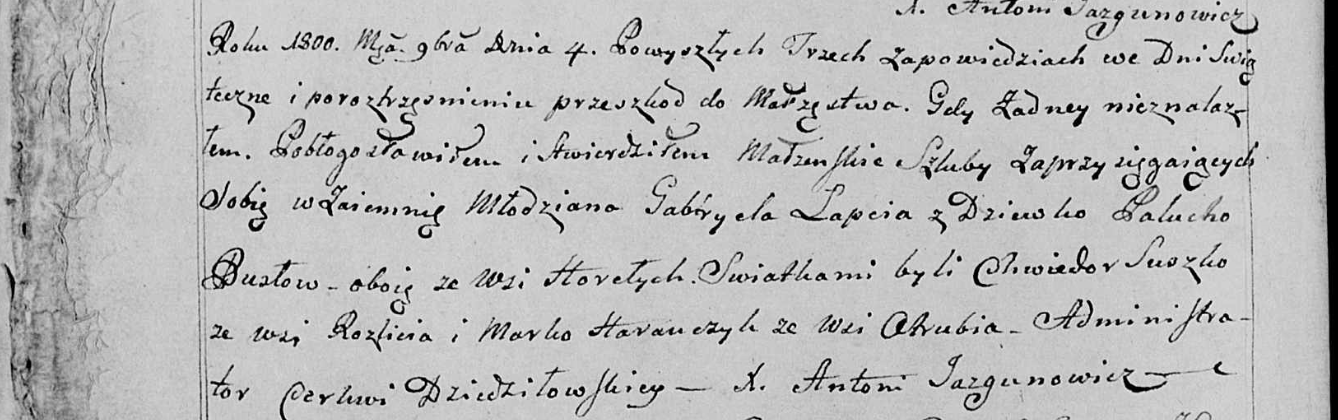 X. Antoni Jazgunowicz
Roku 1800. Mca. 9bra Dnia 4. Powyszłych Trzech Zapowiedziach we Dni Swią
teczne i poroztrzęsnieniu przeszkod do Małzęstwa. Gdy Zadney nieznalaz-
łem. Pobłogosławiłem i Stwierdziłem Małzenskie Szluby Zaprzysięgaiących
Sobię wzaiemnię Młodziana Gabryela Lapcia z Dziewko Palucho
Busłow - oboię ze Wsi Horełych. Swiatkami byli Chwiedor Suszko
ze wsi Rozlicia i Marko Harauczyk ze Wsi Otrubia - Administra-
tor Cerkwi Dziedziłowskiey - X. Antoni Jazgunowicz